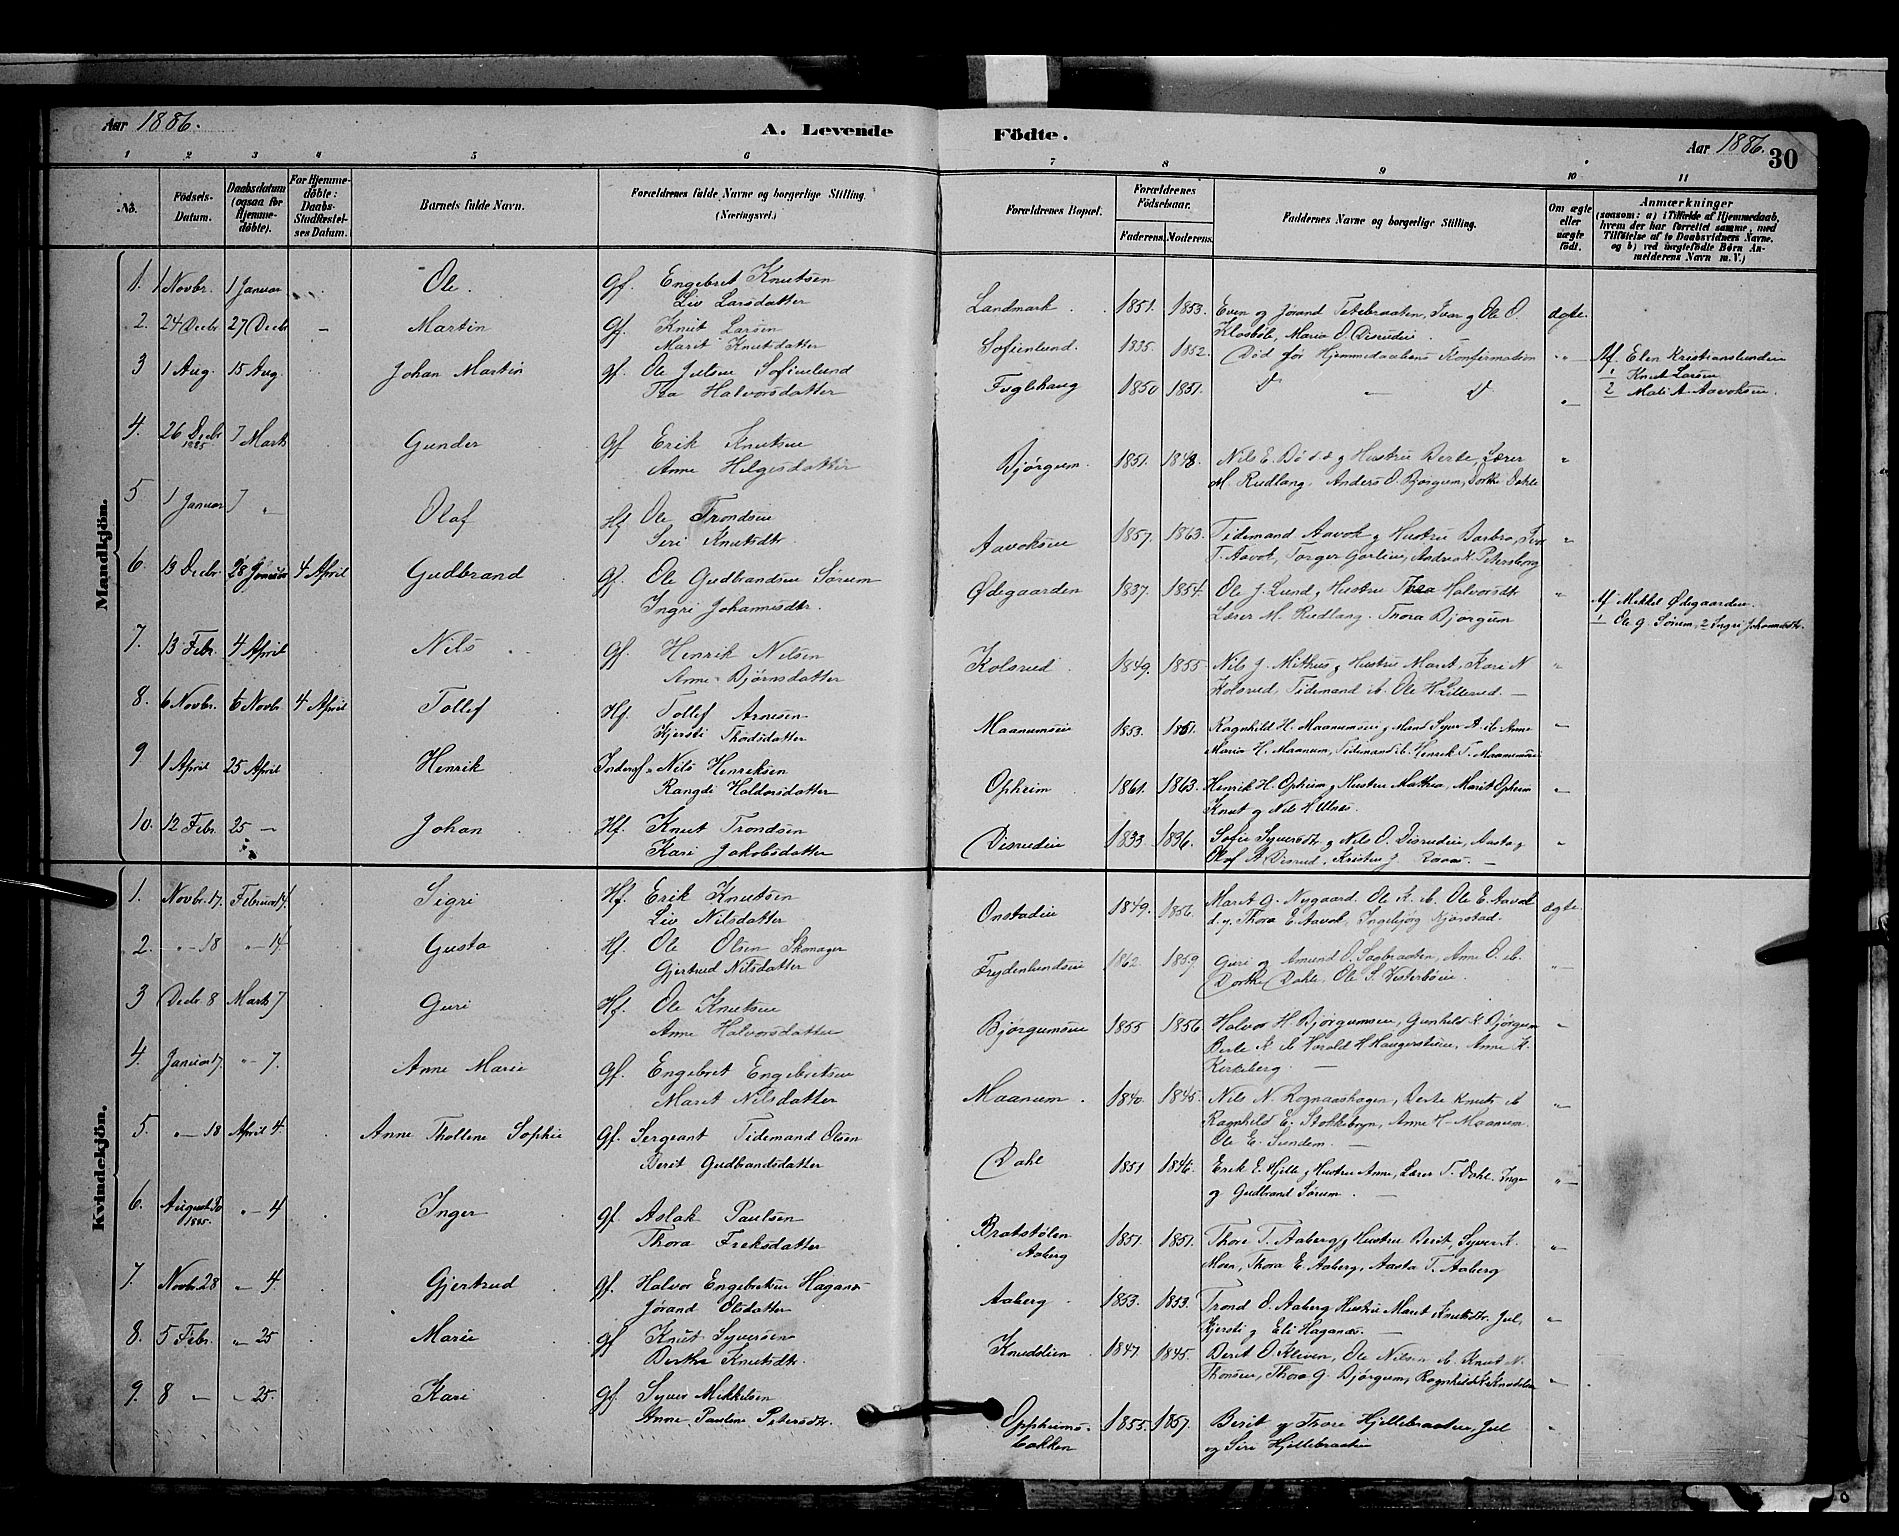 Aar 1886.
A. Levende Födte.
Aar 1886.
30
1 2 3 4 5 6 7 8 9 10 11
No.
Födsels-Datum.
Daabsdatum (ogsaa for Hjemme-döbte).
For Hjemme-döbte: Daabs-Stadfæstel-ses Datum.
Barnets fulde Navn.
Forældrenes fulde Navne og borgerlige Stilling. (Næringsvei.)
Forældrenes Bopæl.
Forældrenes Födselsaar.
Faderens. Moderens.
Faddernes Navne og borgerlige Stilling.
Om ægte eller uægte födt.
Anmærkninger
(saasom: a) i Tilfælde af Hjemmedaab,
hvem der har forrettet samme, med
Tilföielse af to Daabsvidners Navne,
og b) ved uægtefödte Börn An-
melderens Navn m. V.)
Mandkjön.
1. 1 Novbr. 1 Januar Ole Gf. Engebret Knutsen
Liv Larsdatter
Landmark. 1851. 1853. Even og Jørand Tetebraaten, Ivar og Ole O.
Klosbøle, Maria O. Disrudei. ægte.
2. 24 Decbr 27 Decbr Martin Gf. Knut Larsen
Marit Knutsdatter
Sofienlund. 1835. 1852. Død før Hjemmedaabens Konfirmation
Af Elen Kristianslundein
1 Knut Larsen
2 Mali A. Aavoksen.
3 1 Aug. 15 Aug. Johan Martin Gf. Ole Julsen Sofienlund
Thea Halvorsdatter
Fuglehaug 1850 1851.
4. 26 Decbr 1885 7 Marts Gunder Gf Erik Knutsen
Anne Helgesdatter
Bjørgum. 1851. 1848. Nils E. Bø og Hustru Berte, Lærer
M. Rudlang, Anders O. Bjørgum, Dorthe Dahle
5 1 Januar 7 " Olaf Hf Ole Trondsen
Siri Knutsdtr
Aavoksei 1857. 1863. Tidemand Aavok og Hustru Barbro,
T. Aavok, Torger Garlien, Andrea K Petersborg
6. 13 Decbr. 28 Januar 4 April Gudbrand Gf. Ole Gudbrandsen Sørum
Ingri Johannesdtr.
Ødegaarden 1837. 1854. Ole J. Lund og Hustru Thea Halvorsdtr
Lærer M. Rudlang. Thora Bjørgum
Af Mikkel Ødegaarden.
1 Ole G. Sørum, 2 Ingri Johannesdtr.
7. 13 Febr. 4 April Nils Gf. Henrik Nilsen
Anne Bjørnsdatter
Kolsrud. 1849. 1855 Nils J. Mithus og Hustru Maret, Kari N
Kolsrud, Tidemand ib. Ole Hallesrud. —
8. 6 Novbr. 6 Novbr. 4 April Tollef Hf. Tollef Arnesen
Kjersti Thordsdatter
Maanumsei 1853. 1861. Ragnhild H. Maanumsei og Mand Syver A. ib. Anne
Maria H. Maanum, Tidemand ib. Henrik T. Maanumsei
9 1 April 25 April Henrik Inders. Nils Henriksen
Rangdi Haldorsdatter
Opheim 1861. 1863. Henrik H. Opheim og Hustru Mathea, Marit Opheim
Knut og Nils H. Ulnes.
10. 12 Febr. 25 — Johan Hf. Knut Trondsen
Kari Jakobsdatter
Disrudei 1833. 1836. Sofie Syversdtr. og Nils O. Disrudei, Aasta og
Olaf A. Disrud, Kristen J. —
Kvindekjön.
1. Novbr. 17. Februar 14. Sigri Hf. Erik Knutsen
Liv Nilsdatter
Onstadei 1849. 1856. Maret G. Nygaard. Ole K. ib. Ole E. Aavok
d.y. Thora E. Aavok, Ingebjørg Bjørstad. ægte.
2. " - 18 " - 14 Gusta Hf. Ole Olsen Skomager
Gjertrud Nilsdatter
Frydenlundsei 1862. 1859 Guri og Amund O. Saebraaten, Anne O. ib.
Dorthe Dahle, Ole S. Vesterbøei.
3 Decbr 8 Marts 7 Guri Hf. Ole Knutsen
Anne Halvorsdatter
Bjørgumsei 1855 1856 Halvor H. Bjørgumsei, Gunhild K. Bjørgum
Berte K. ib. Harald H. Haugerstuen, Anne K.
Kirkeberg. —
4. Januar 17. " - 7. Anne Marie Gf. Engebret Engebretsen
Maret Nilsdatter
Maanum. 1840. 1845. Nils N. Rognaashagen, Berte Knuts. ib
Ragnhild E. Stokkebryn, Anne H. Maanum.
Ole E. Sundem. —
5. " - 18 April 4. Anne Tholline Sophie Gf. Sergeant Tidemand Olsen
Berit Gudbrandsdatter
Dahl 1851 1846. Erik E. Hjelle og Hustru Anne, Lærer T. Dahl. Inge
og Gudbrand Sørum. —
6. August 30 1885. " - 4 Inger Gf. Aslak Paulsen
Thora Eriksdatter
Bratstølen
Aaberg 1851. 1851. Thore T. Aaberg og Hustru Berit, Syver K.
Moen, Thora E. Aaberg, Aasta T. Aaberg
7. Novbr. 28 " - 4. Gjertrud Gf. Halvor Engebretsen Haganes
Jørand Olsdatter
Aaberg. 1853. 1853. Trond O. Aaberg Hustru Maret Knutsdtr. Jul,
Kjersti og Eli Haganæs. —
8. 5 Febr. " 25 Marie Gf. Knut Syversen
Berthe Knutsdtr.
Knudslien 1847 1845. Berit O. Kliven, Ole Nilsen ib. Knut N.
Thonsen, Thora G. Bjørgum, Ragnhild K. Knudslien
9. 8 — " - 25. Kari Gf. Syver Mikkelsen
Anne Pauline Petersdtr.
Oppheims-
bakken 1855. 1857. Berit og Thore Hjellebraaten, Jul
og Siri Hjellebraaten